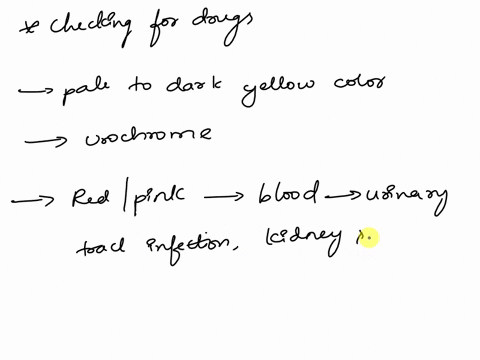 * Checking for drugs
→ pale to dark yellow color
→ urochrome
→ Red / pink → blood → urinary
tract infection, kidney